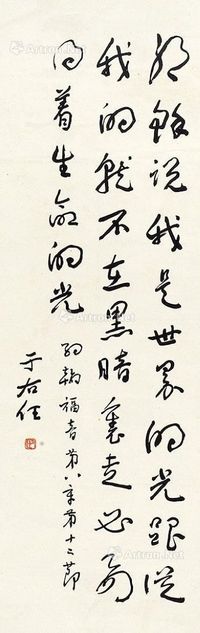 耶穌说我是世界的光跟從
我的就不在黑暗裏走必要
得着生命的光
約翰福音第八章第十二節
于右任